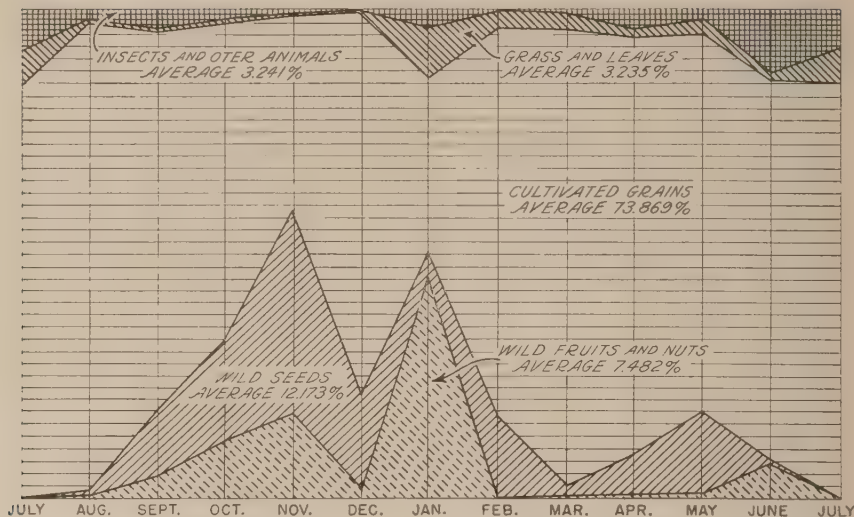 INSECTS AND OTER ANIMALS
AVERAGE 3.241%
GRASS AND LEAVES
AVERAGE 3.235%
CULTIVATED GRAINS
AVERAGE 73.869%
WILD FRUITS AND NUTS
AVERAGE 7.482%
WILD SEEDS
AVERAGE 12.173%
JULY AUG. SEPT. OCT. NOV. DEC. JAN. FEB. MAR. APR. MAY JUNE JULY